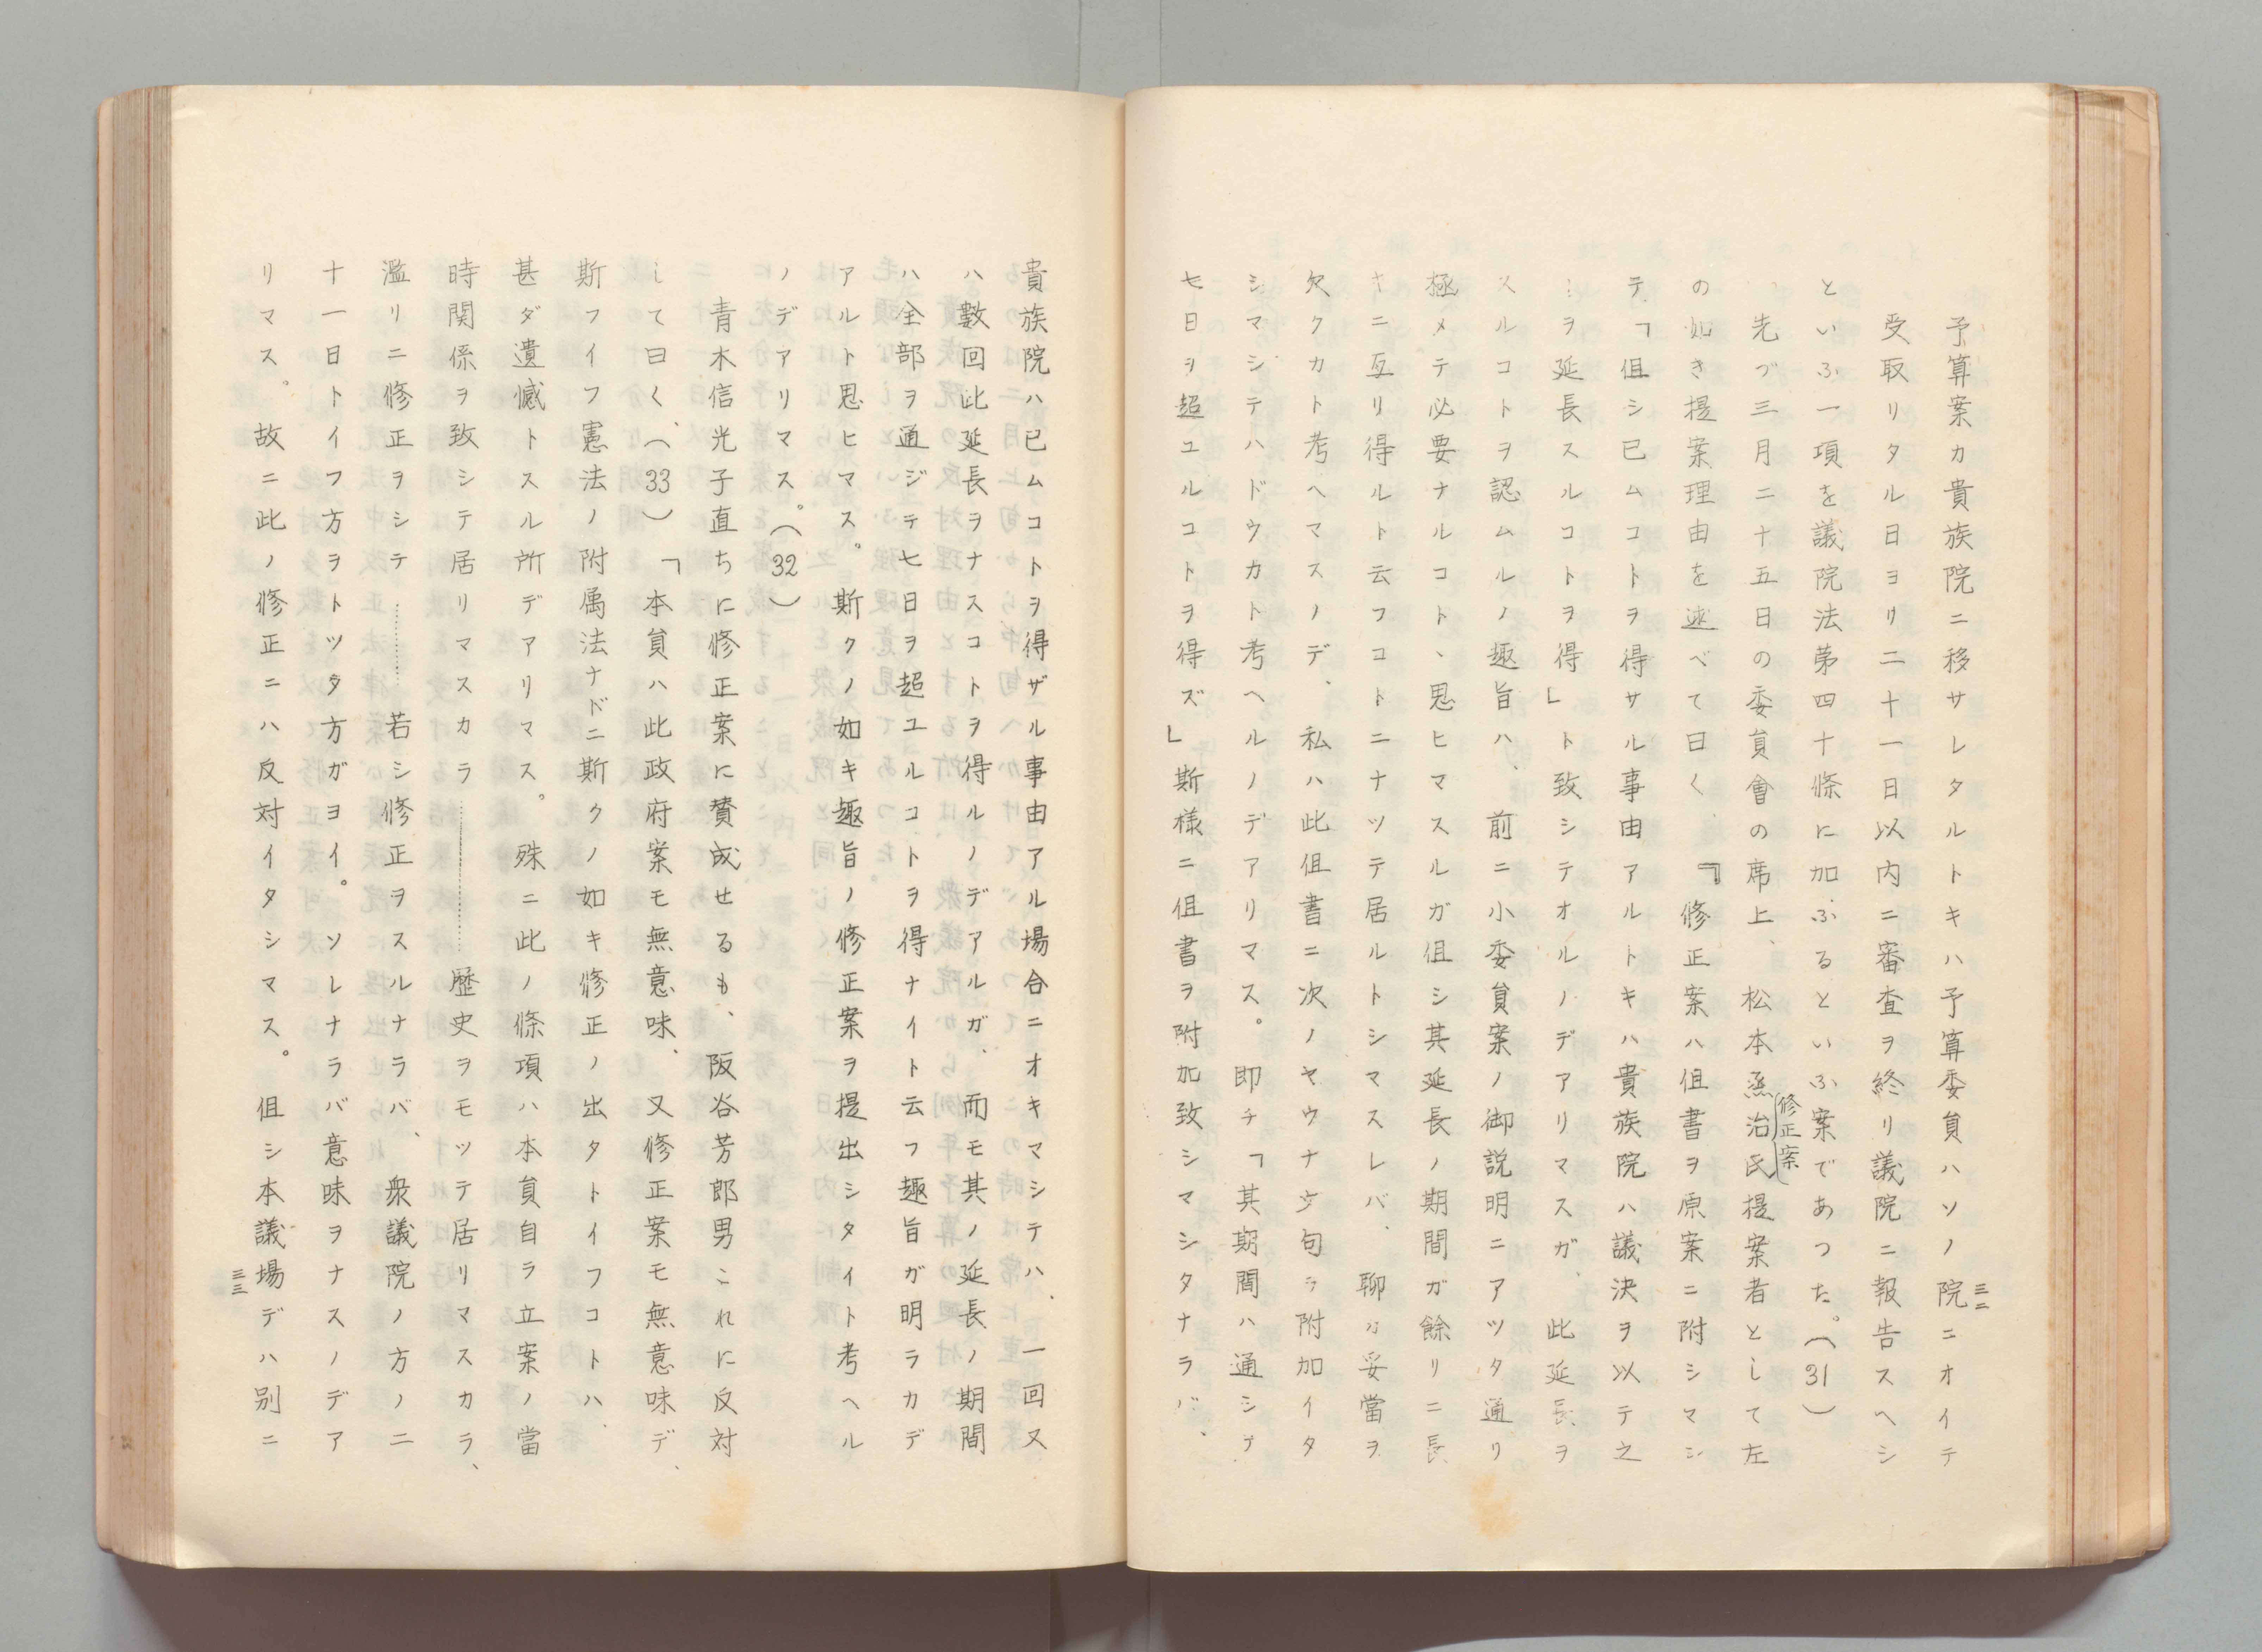 三二
予算案カ貴族院ニ移サレタルトキハ予算委員ハソノ院ニオイテ
受取リタル日ヨリ二十一日以内ニ審査ヲ終リ議院ニ報告スヘシ
といふ一項を議院法第四十條に加ふるといふ案であつた。(31)
先づ三月二十五日の委員會の席上、松本烝治氏提案者として左
(修正案)
の如き提案理由を述べて曰く、「修正案ハ但書ヲ原案ニ附シマシ
テ「但シ已ムコトヲ得サル事由アルトキハ貴族院ハ議決ヲ以テ之
ヲ延長スルコトヲ得」ト致シテオルノデアリマスガ、此延長ヲ
スルコトヲ認ムルノ趣旨ハ、前ニ小委員案ノ御説明ニアツタ通リ
極メテ必要ナルコト、思ヒマスルガ但シ其延長ノ期間ガ餘リニ長
キニ亙リ得ルト云フコトニナツテ居ルトシマスレバ、聊カ妥當ヲ
欠クカト考ヘマスノデ、私ハ此但書ニ次ノヤウナ字句ヲ附加イタ
シマシテハドウカト考ヘルノデアリマス。即チ「其期間ハ通シテ
七日ヲ超ユルコトヲ得ズ」斯様ニ但書ヲ附加致シマシタナラバ、
貴族院ハ已ムコトヲ得ザル事由アル場合ニオキマシテハ、一回又
ハ數回此延長ヲナスコトヲ得ルノデアルガ、而モ其ノ延長ノ期間
ハ全部ヲ通ジテ七日ヲ超ユルコトヲ得ナイト云フ趣旨ガ明ラカデ
アルト思ヒマス。斯クノ如キ趣旨ノ修正案ヲ提出シタイト考ヘル
ノデアリマス。(32)
青木信光子直ちに修正案に賛成せるも、阪谷芳郎男これに反対
して曰く、(33)「本員ハ此政府案モ無意味、又修正案モ無意味デ、
斯フイフ憲法ノ附属法ナドニ斯クノ如キ修正ノ出タトイフコトハ、
甚ダ遺憾トスル所デアリマス。殊ニ此ノ條項ハ本員自ラ立案ノ當
時関係ヲ致シテ居リマスカラ…………歴史ヲモツテ居リマスカラ、
濫リニ修正ヲシテ……若シ修正ヲスルナラバ、衆議院ノ方ノ二
十一日トイフ方ヲトツタ方ガヨイ。ソレナラバ意味ヲナスノデア
リマス。故ニ此ノ修正ニハ反対イタシマス。但シ本議場デハ別ニ
三三